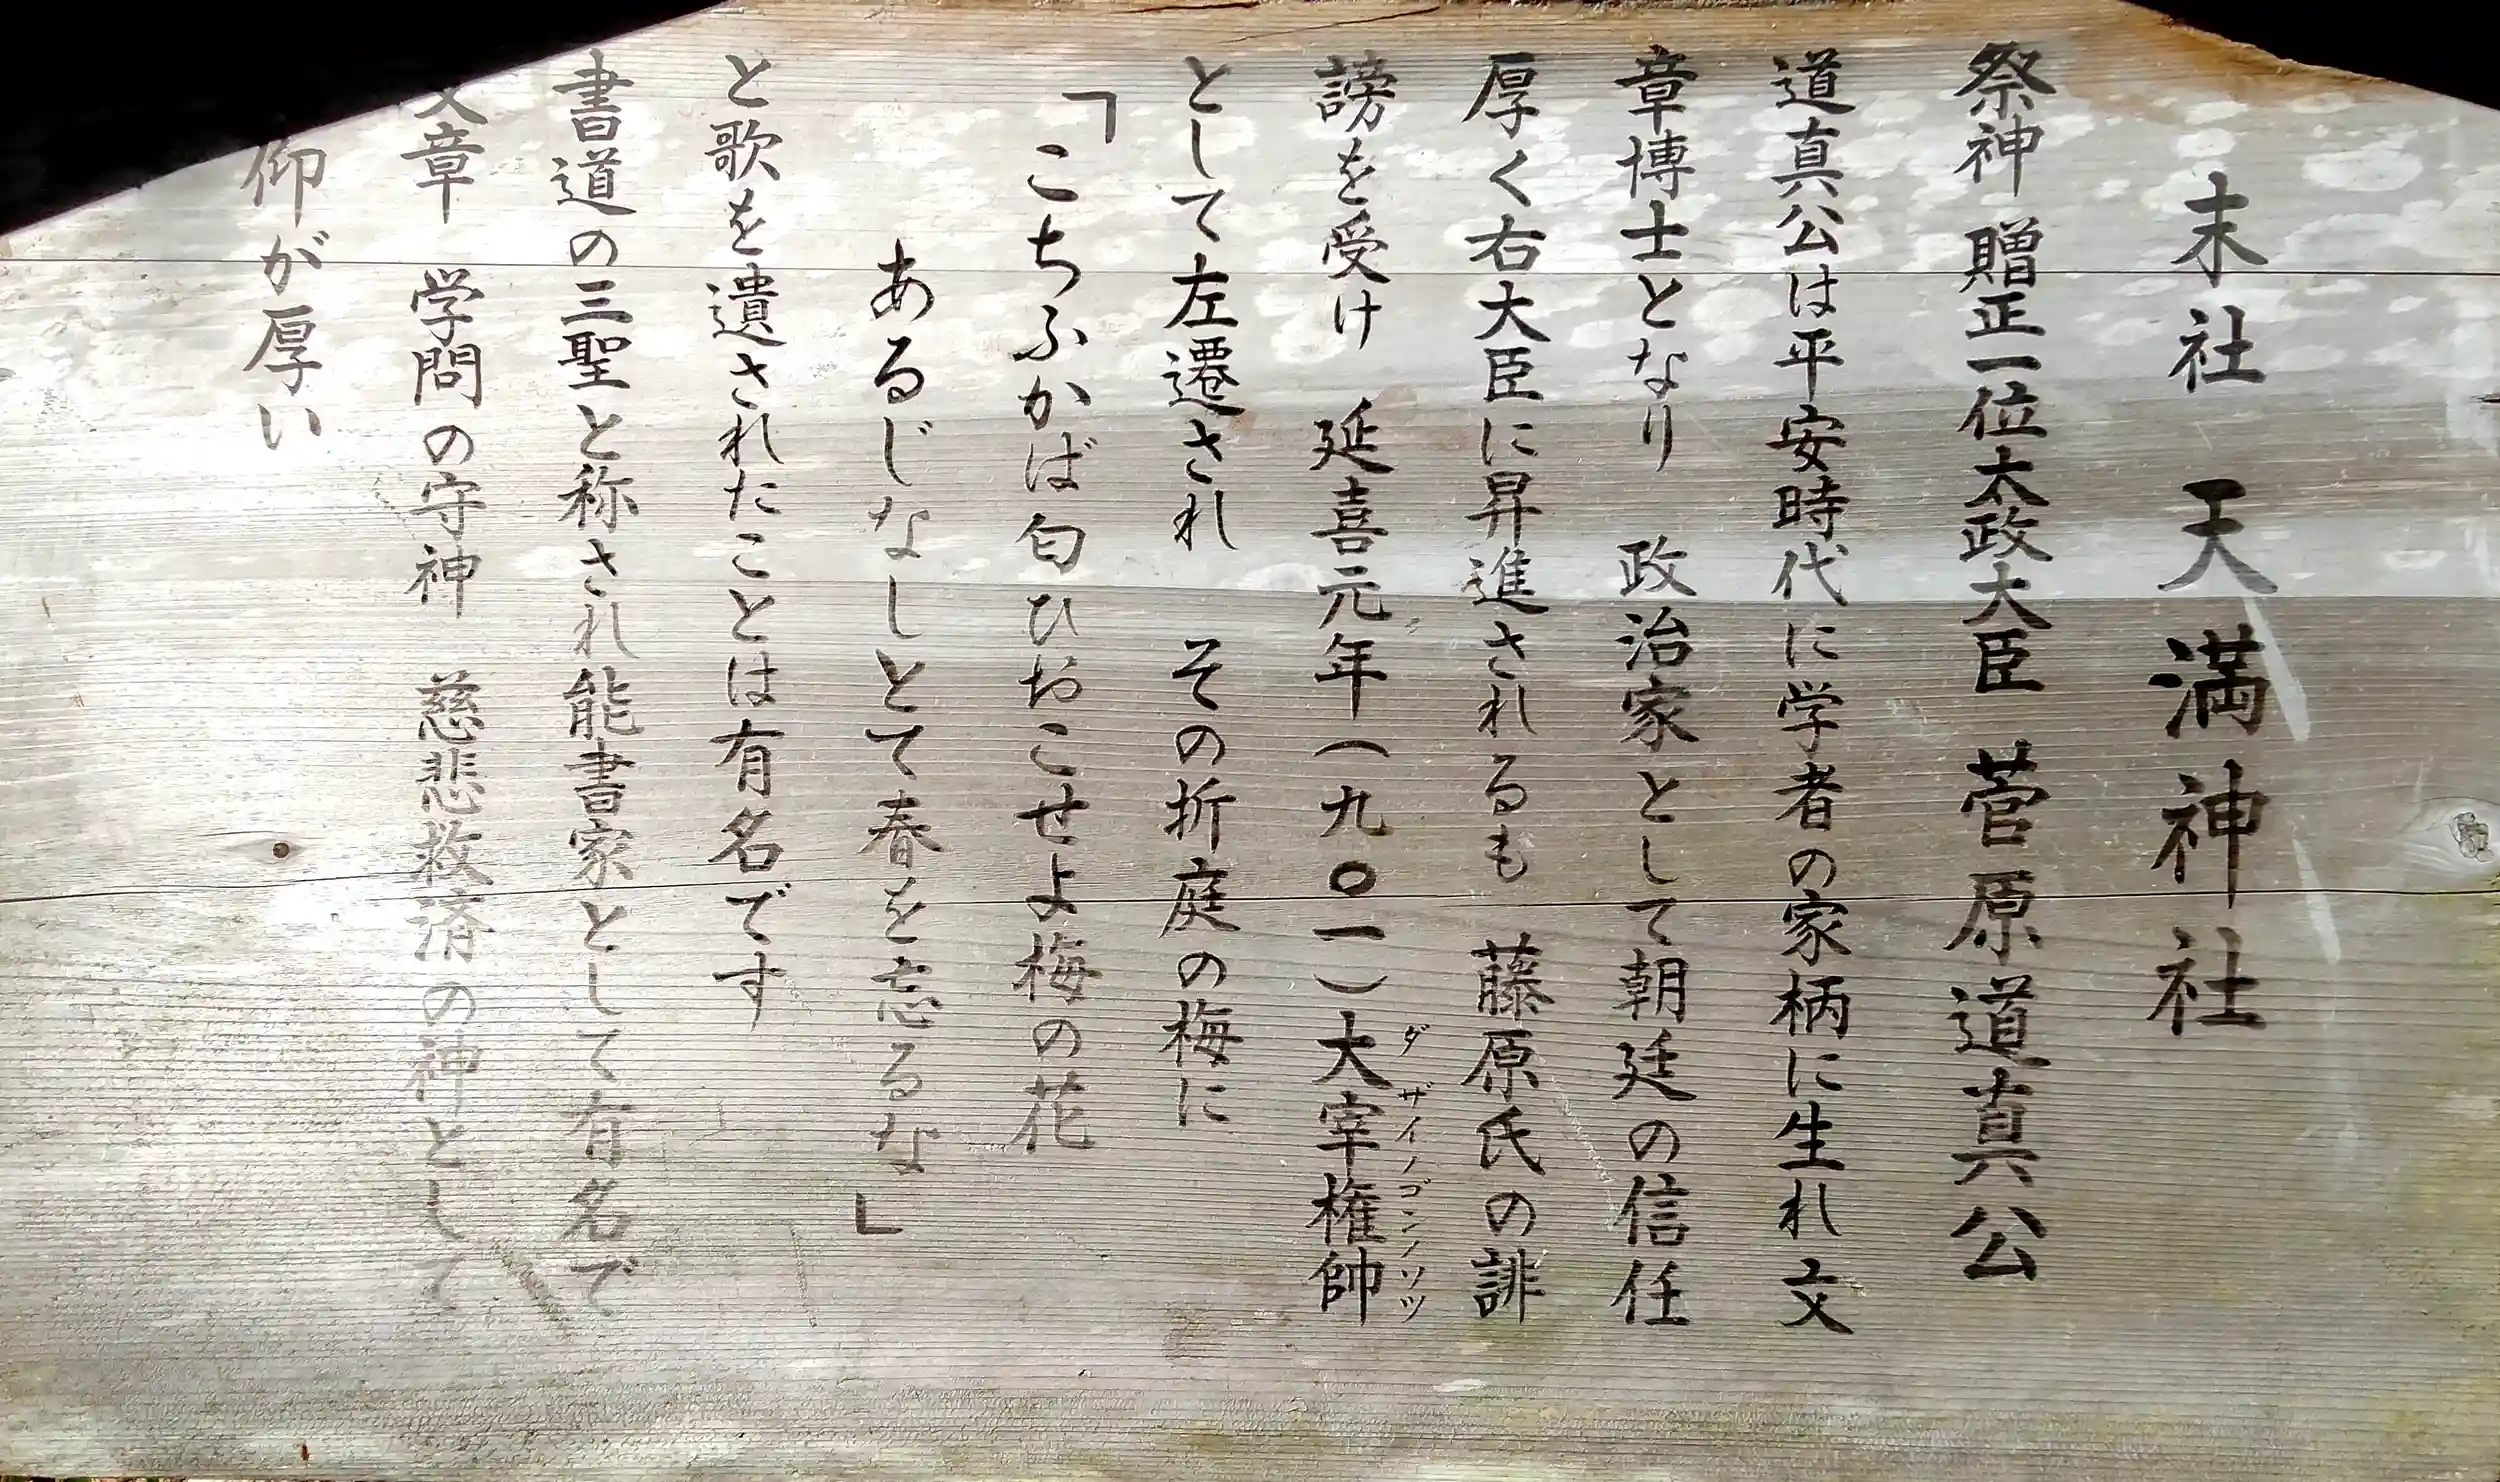 末社 天満神社
祭神 贈正一位太政大臣 菅原道真公
道真公は平安時代に学者の家柄に生れ文
章博士となり 政治家として朝廷の信任
厚く右大臣に昇進されるも 藤原氏の誹
謗を受け 延喜元年(九〇一)大宰権帥
ダザイノゴンノソツ
として左遷され その折庭の梅に
「こちふかば匂ひおこせよ梅の花
あるじなしとて春を忘るな」
と歌を遺されたことは有名です
書道の三聖と称され能書家として有名で
文章 学問の守神 慈悲救済の神として
仰が厚い